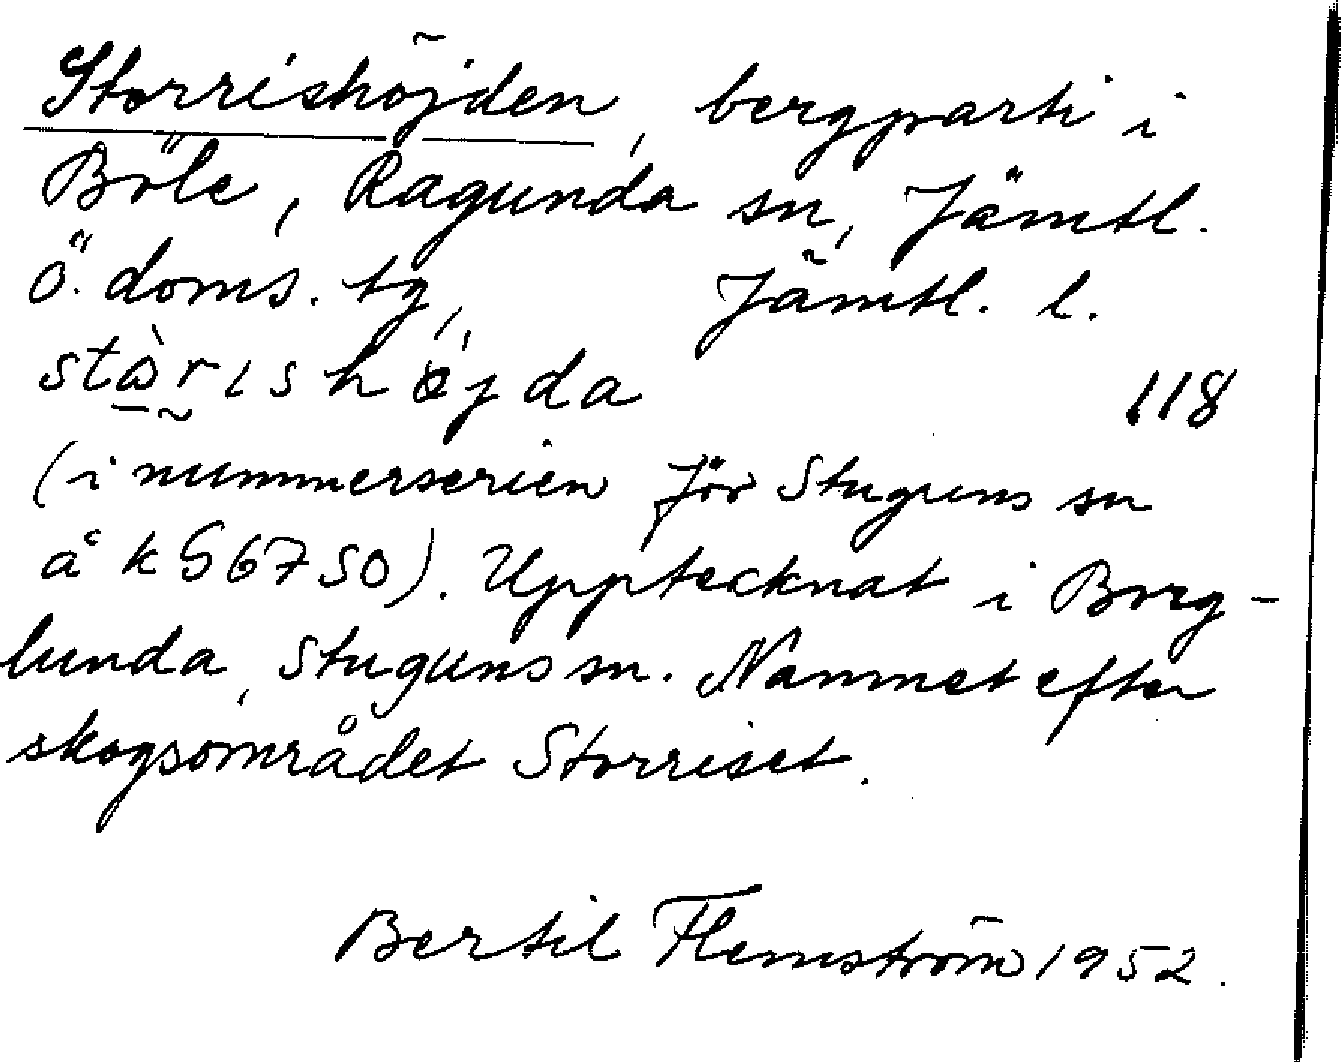 Storrishöjden, bergparti i
Böle, Ragunda sn, Jämtl.
ö. doms. tg, Jämtl. l.
118
(i nummerserien för Stuguns sn
å k 56750). Upptecknat i Borg-
lunda, Stuguns sn. Namnet efter
skogsområdet Storriset.
Bertil Flemström 1952.